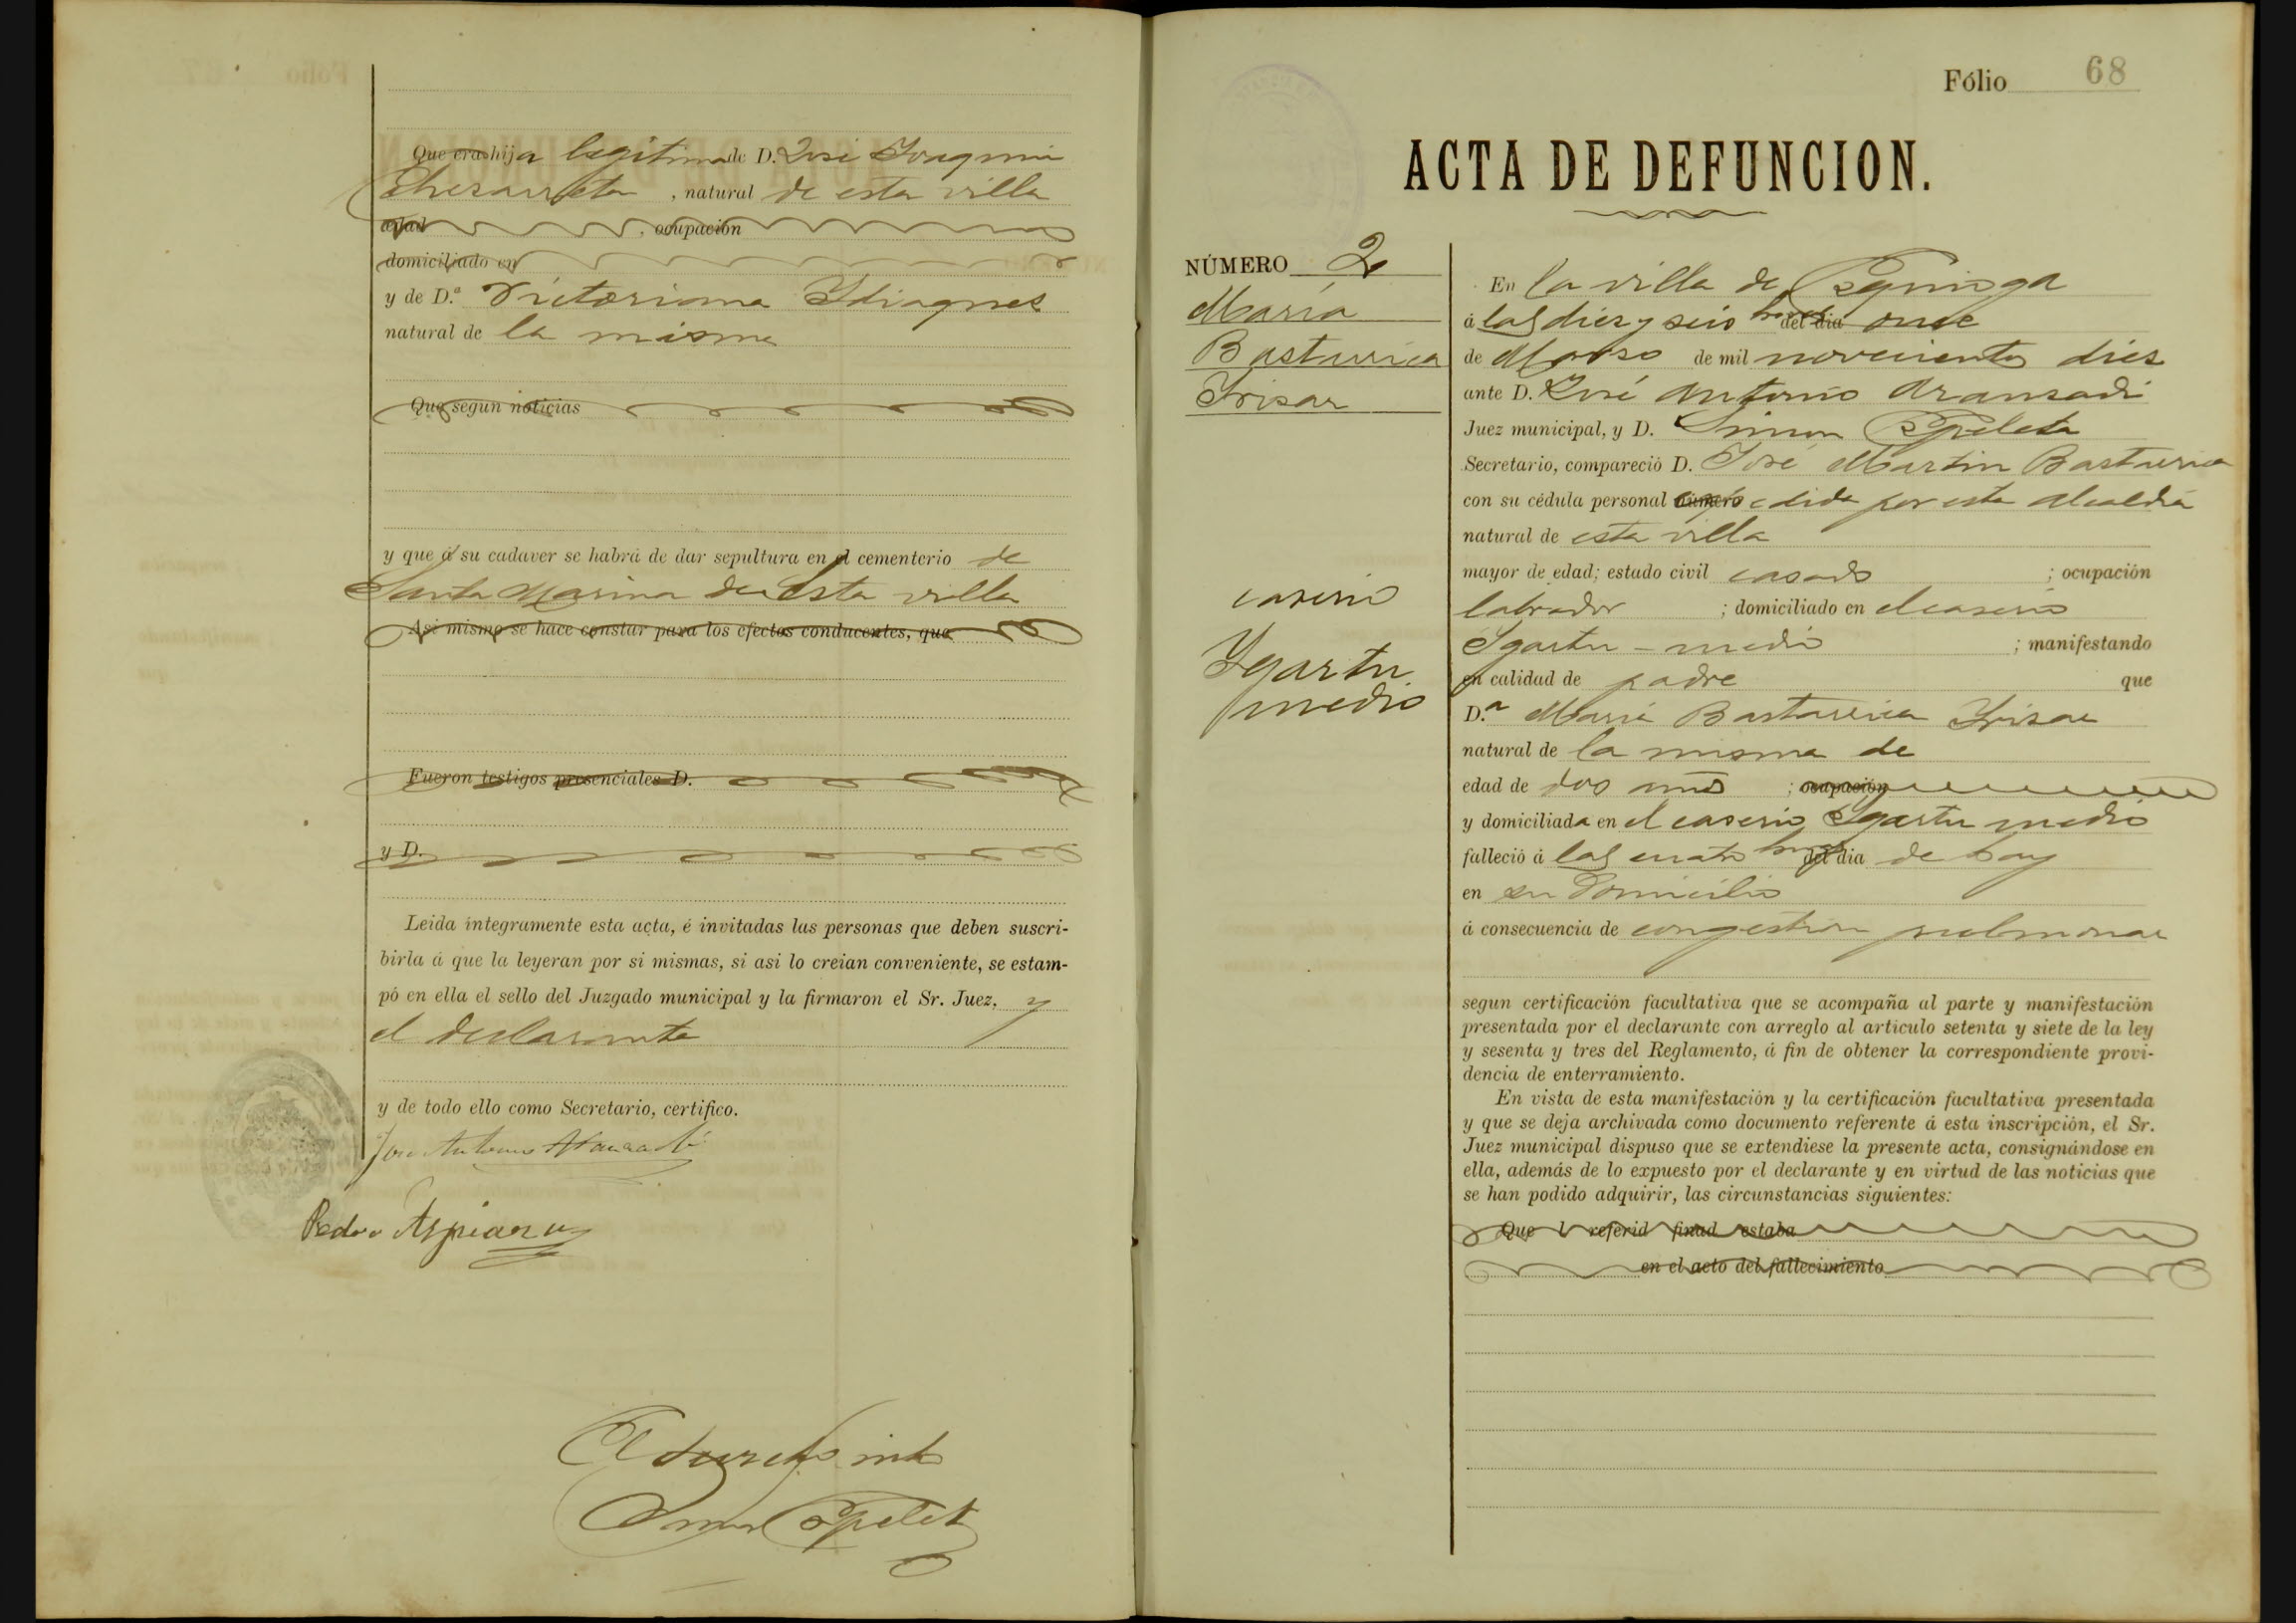 Que era hija legitima de D. José Joaquin
Echezarreta , natural de esta villa
edad , ocupación
domiciliado en
y de D.ª Victoriana Ydiaquez
natural de la misma
Que segun noticias
y que á su cadaver se habrá de dar sepultura en el cementerio de
Santa Marina de esta villa
Asi mismo se hace constar para los efectos conducentes, que
Fueron testigos presenciales D.
y D.
Leida íntegramente esta acta, é invitadas las personas que deben suscri-
birla á que la leyeran por si mismas, si asi lo creian conveniente, se estam-
pó en ella el sello del Juzgado municipal y la firmaron el Sr. Juez, y
el declarante
y de todo ello como Secretario, certifico.
José Antonio Aranzadi
Pedro Aspiazu
El Secretario
Simon Epelde
Fólio 68
ACTA DE DEFUNCION.
NÚMERO 2
María
Bastarrica
Irisar
caserio
Ygartu
medio
En la villa de
á las diez y seis horas del dia once
de Marzo de mil novecientos diez
ante D. José Antonio Aranzadi
Juez municipal, y D. Simon Epelde
Secretario, compareció D. José Martin Bastarrica
con su cédula personal número expedida por esta Alcaldia
natural de esta villa
mayor de edad; estado civil casado ; ocupación
labrador ; domiciliado en el caserio
Ygartu - medio ; manifestando
en calidad de padre que
D.ª María Bastarrica Irisar
natural de la misma de
edad de dos años ; ocupación
y domiciliada en el caserio Ygartu medio
falleció á las cuatro horas del dia de hoy
en su domicilio
á consecuencia de congestion pulmonar
segun certificación facultativa que se acompaña al parte y manifestación
presentada por el declarante con arreglo al articulo setenta y siete de la ley
y sesenta y tres del Reglamento, á fin de obtener la correspondiente provi-
dencia de enterramiento.
En vista de esta manifestación y la certificación facultativa presentada
y que se deja archivada como documento referente á esta inscripción, el Sr.
Juez municipal dispuso que se extendiese la presente acta, consignándose en
ella, además de lo expuesto por el declarante y en virtud de las noticias que
se han podido adquirir, las circunstancias siguientes:
Que l referid finad estaba
en el acto del fallecimiento